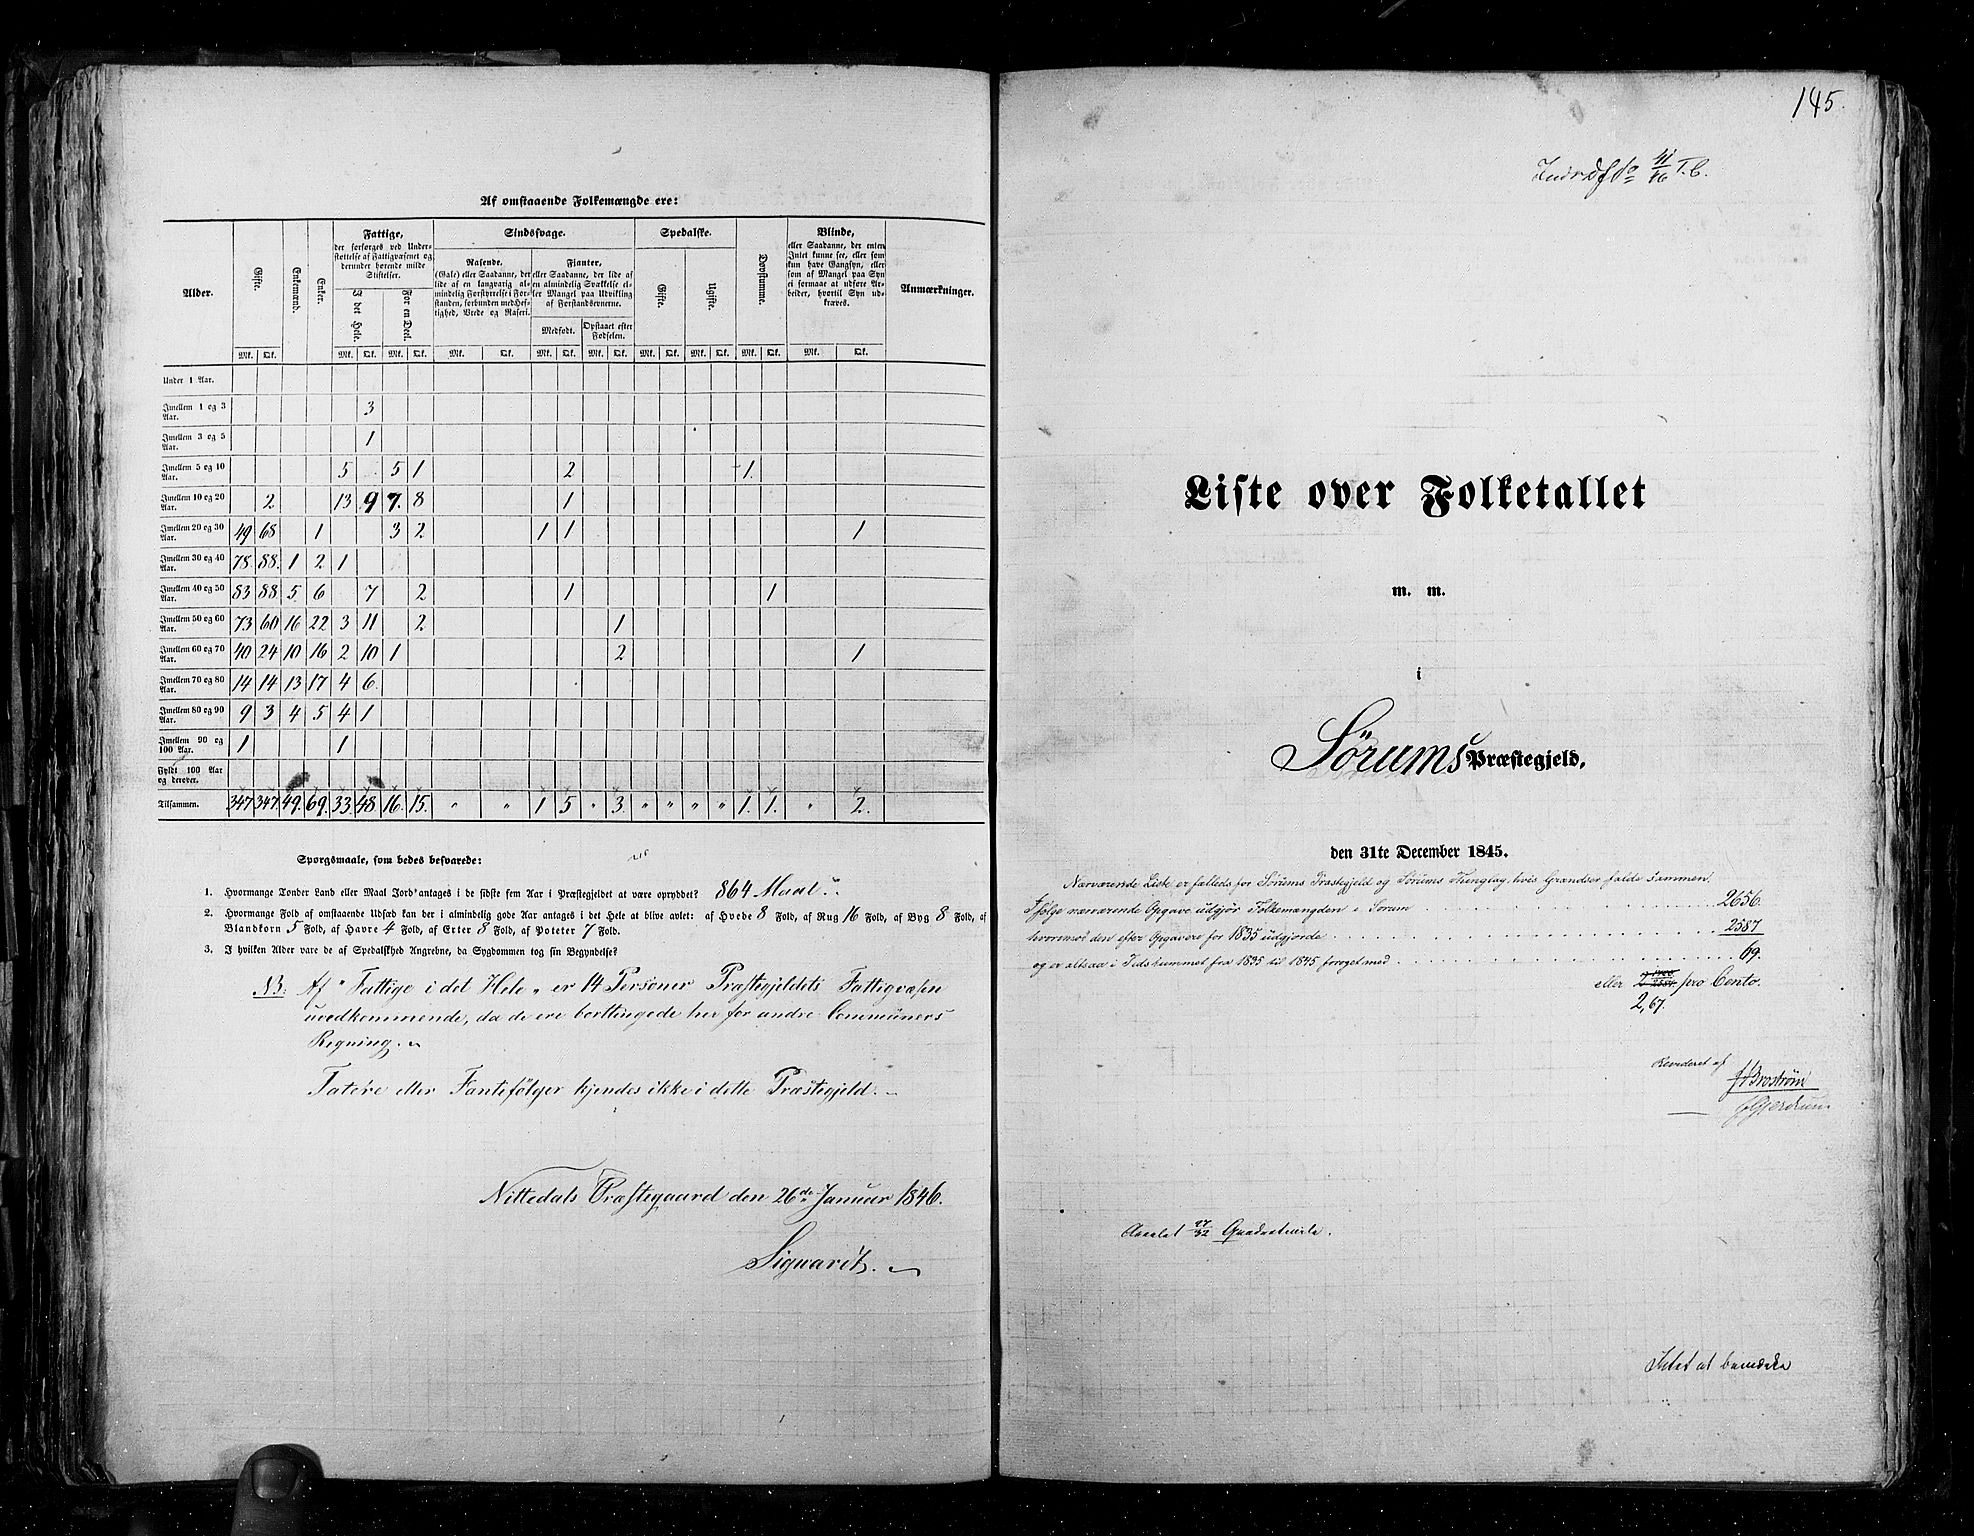 Af omstaaende Folkemængde ere:
Alder. Gifte. Enkemænd. Enker. Fattige, der forsørges ved Understøttelse af Fattigvæsenet og derunder hørende milde Stiftelser. Sindssvage. Spedalske. Døvstumme. Blinde, eller Saadanne, der enten Intet kunne see, eller som kun have Gangsyn, eller som af Mangel paa Syn ei formaae at udføre Arbeider, hvortil Syn udkræves. Anmærkninger.
I det Hele. For en Deel. Rasende. (Gale) eller Saadanne, der lide af en langvarig almindelig Forstyrrelse i Forstanden, forbunden med Heftighed, Vrede og Raseri. Fjanter, eller Saadanne, der lide af en almindelig Svækkelse eller Mangel paa Udvikling af Forstandsevnerne. Gifte. Ugifte.
Medfødt. Opstaaet efter Fødselen.
Mk. Qk. Mk. Qk. Mk. Qk. Mk. Qk. Mk. Qk. Mk. Qk. Mk. Qk. Mk. Qk. Mk. Qk. Mk. Qk.
Under 1 Aar.
Imellem 1 og 3 Aar. 3
Imellem 3 og 5 Aar. 1
Imellem 5 og 10 Aar. 5 5 1 2 1.
Imellem 10 og 20 Aar. 2 13 9 7. 8 1
Imellem 20 og 30 Aar. 49 68 1 3 2 1 1 1
Imellem 30 og 40 Aar. 78. 88. 1 2 1
Imellem 40 og 50 Aar. 83 88. 5. 6 7 2 1 1
Imellem 50 og 60 Aar. 73 60 16 22 3 11 2 1
Imellem 60 og 70 Aar. 40 24 10 16 2 10 1 2 1
Imellem 70 og 80 Aar. 14 14 13 17 4 6
Imellem 80 og 90 Aar. 9 3 4 5 4 1
Imellem 90 og 100 Aar. 1 1
Fyldt 100 Aar og derover.
Tilsammen. 347 347 49. 69. 33. 48. 16. 15. " " 1 5 " 3. " " " " 1. 1. " 2.
Spørgsmaale, som bedes besvarede:
1. Hvormange Tønder Land eller Maal Jord antages i de sidste fem Aar i Præstegjeldet at være opryddet? 864 Maal
2. Hvormange Fold af omstaaende Udsæd kan der i almindelig gode Aar antages i det Hele at blive avlet: af Hvede 8 Fold, af Rug 16 Fold, af Byg 8 Fold, af
Blandkorn 5 Fold, af Havre 4 Fold, af Erter 8 Fold, af Poteter 7 Fold.
3. I hvilken Alder vare de af Spedalskhed Angrebne, da Sygdommen tog sin Begyndelse?
NB. Af "Fattige i det Hele" er 14 Personer Præstegjeldets Fattigvæsen
uvedkommende, da de ere borttingede her for andre Communers
Regning.
Tatere eller Fantefølger kjendes ikke i dette Præstegjeld.
Nittedals Præstegaard den 26de Januar 1846.
145.
Liste over Folketallet
m. m.
i
Sørums Præstegjeld,
den 31te December 1845.
Nærværende Liste er fælleds for Sørums Præstegjeld og Sørums Thinglag, hvis Grændser falde sammen.
Ifølge nærværende Opgave udgjør Folkemængden i Sørum 2656.
hvorimod den efter Opgaven for 1835 udgjorde 2587
og er altsaa i Tidsrummet fra 1835 til 1845 forøget med 69.
eller pro Cento.
2,67.
Revideret af
Brostrøm
Gjerdrum
Arealet 27/32 Quadratmile.
Intet at bemærke